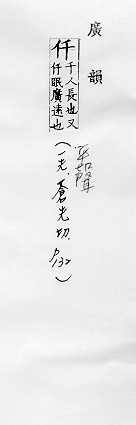 廣韻
仟千人長也又
仟眠廣遠也
平聲
(一先,蒼先切,P132)